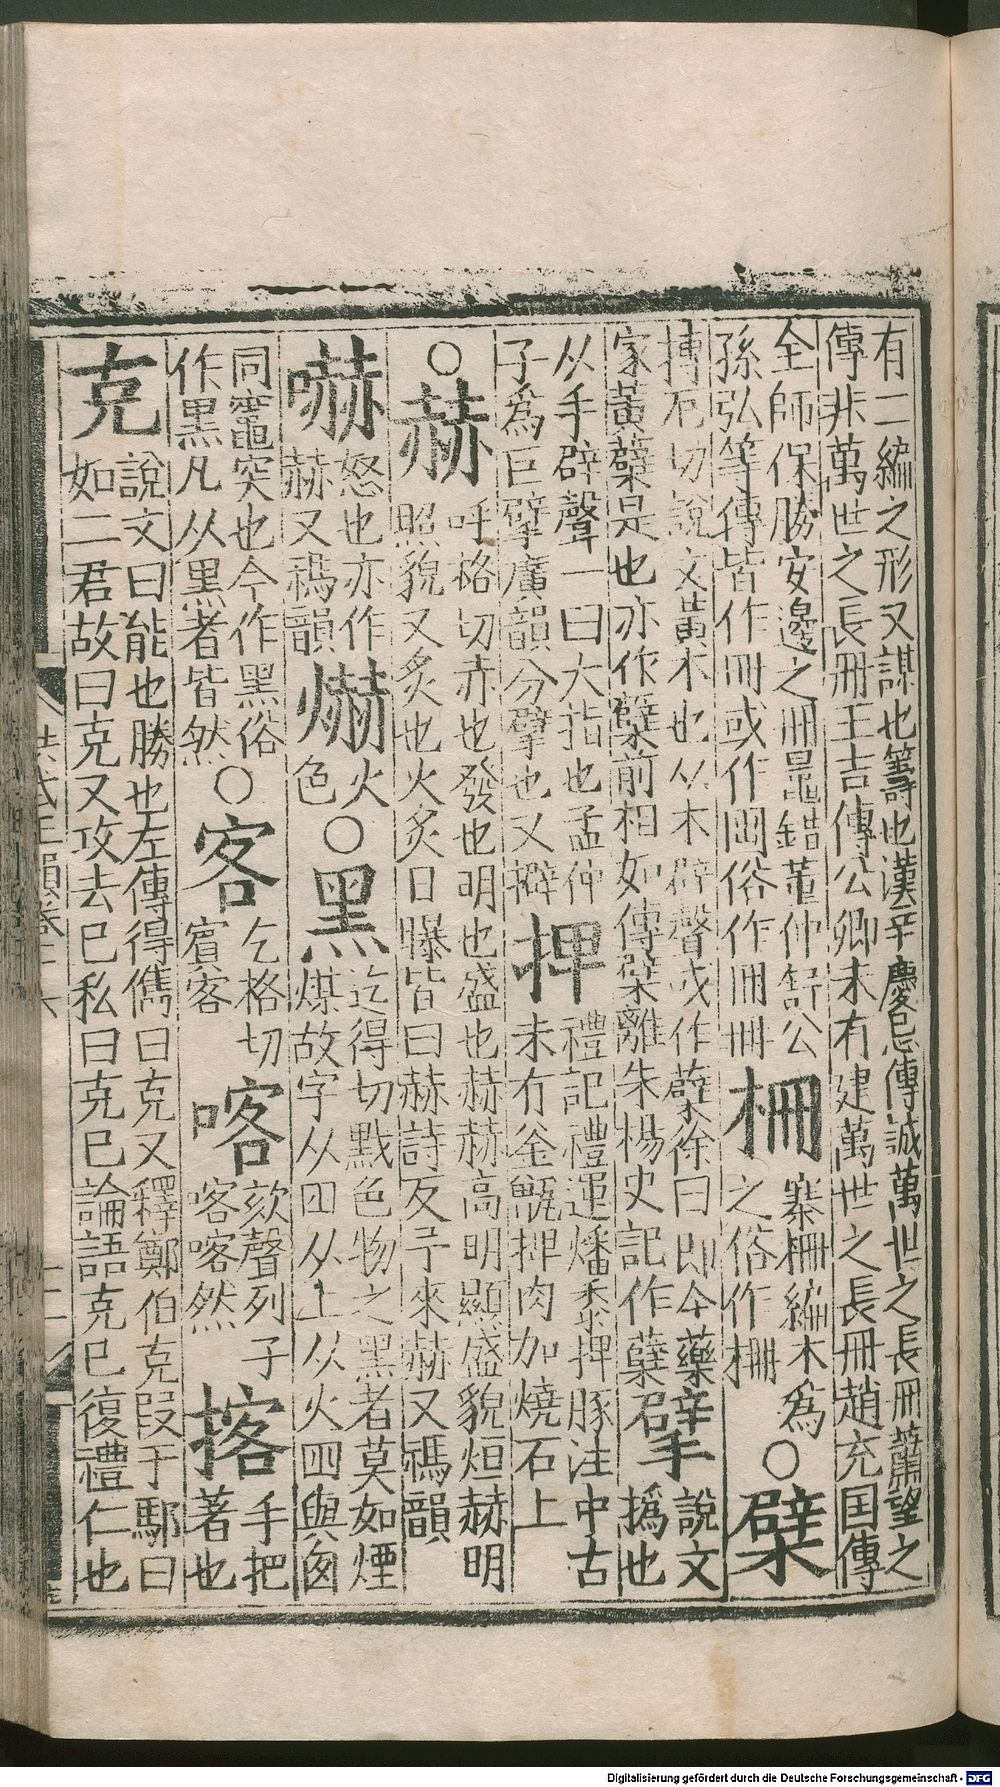 有二編之形又謀也籌也漢辛慶忌傳誠萬世之長冊蕭望之
傳非萬世之長冊王吉傳公卿未有建萬世之長冊趙充国傳
全師保勝安邊之冊鼂錯董仲舒公
孫弘等傳皆作冊或作𠕋俗作冊冊
柵
寨柵編木爲
之俗作柵
○
檗
博厄切說文黃木也从木辟聲或作蘗徐曰即今藥
家黃蘗是也亦作檗前相如傳檗離朱楊史記作蘗
擘
說文
撝也
从手辟聲一曰大指也孟仲
子爲巨擘廣韻分擘也又擗
捭
禮記禮運燔黍捭豚注中古
未有釜甑捭肉加燒石上
○
赫
呼格切赤也發也明也盛也赫赫高明顯盛貌烜赫明
照貌又炙也火炙日曝皆曰赫詩反予來赫又禡韻
嚇
怒也亦作
赫又禡韻
爀
火
色
○
黑
迄得切黕色物之黑者莫如煙
煤故字从囧从土从火囧與囪
同竈突也今作黑俗
作黒凡从黑者皆然
○
客
乞格切
賓客
喀
欬聲列子
喀喀然
㨏
手把
著也
克
說文曰能也勝也左傳得儁曰克又釋鄭伯克段于鄢曰
如二君故曰克又攻去已私曰克已論語克已復禮仁也
Digitalisierung gefördert durch die Deutsche Forschungsgemeinschaft - DFG